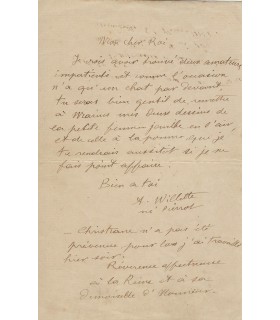 Mon cher Roi,
Je crois avoir trouvé deux amateurs
impatients et comme l'occasion
n'a qu'un chat par devant
tu serais bien gentil de remettre
à Marius mes deux dessins de
la petite femme jambe en l'air
et de celle à la pomme que je
te rendrais aussitôt si je ne
fais point affaire.
Bien à toi
A. Willette
né Pierrot
— Christiane n'a pas été
prévenue pour
hier soir.
Révérence affectueuse
à la Reine et à sa
demoiselle d'Honneur.